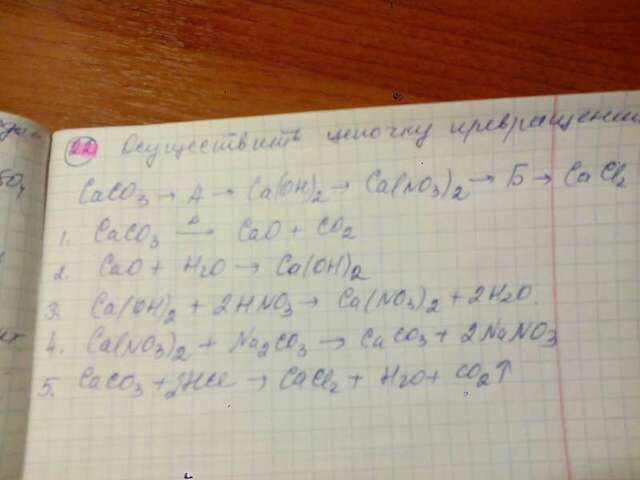 22 Осуществить цепочку превращений
CaCO₃ → A → Ca(OH)₂ → Ca(NO₃)₂ → Б → CaCl₂
1. CaCO₃ →^Δ CaO + CO₂
2. CaO + H₂O → Ca(OH)₂
3. Ca(OH)₂ + 2HNO₃ → Ca(NO₃)₂ + 2H₂O.
4. Ca(NO₃)₂ + Na₂CO₃ → CaCO₃ + 2NaNO₃
5. CaCO₃ + 2HCl → CaCl₂ + H₂O + CO₂↑